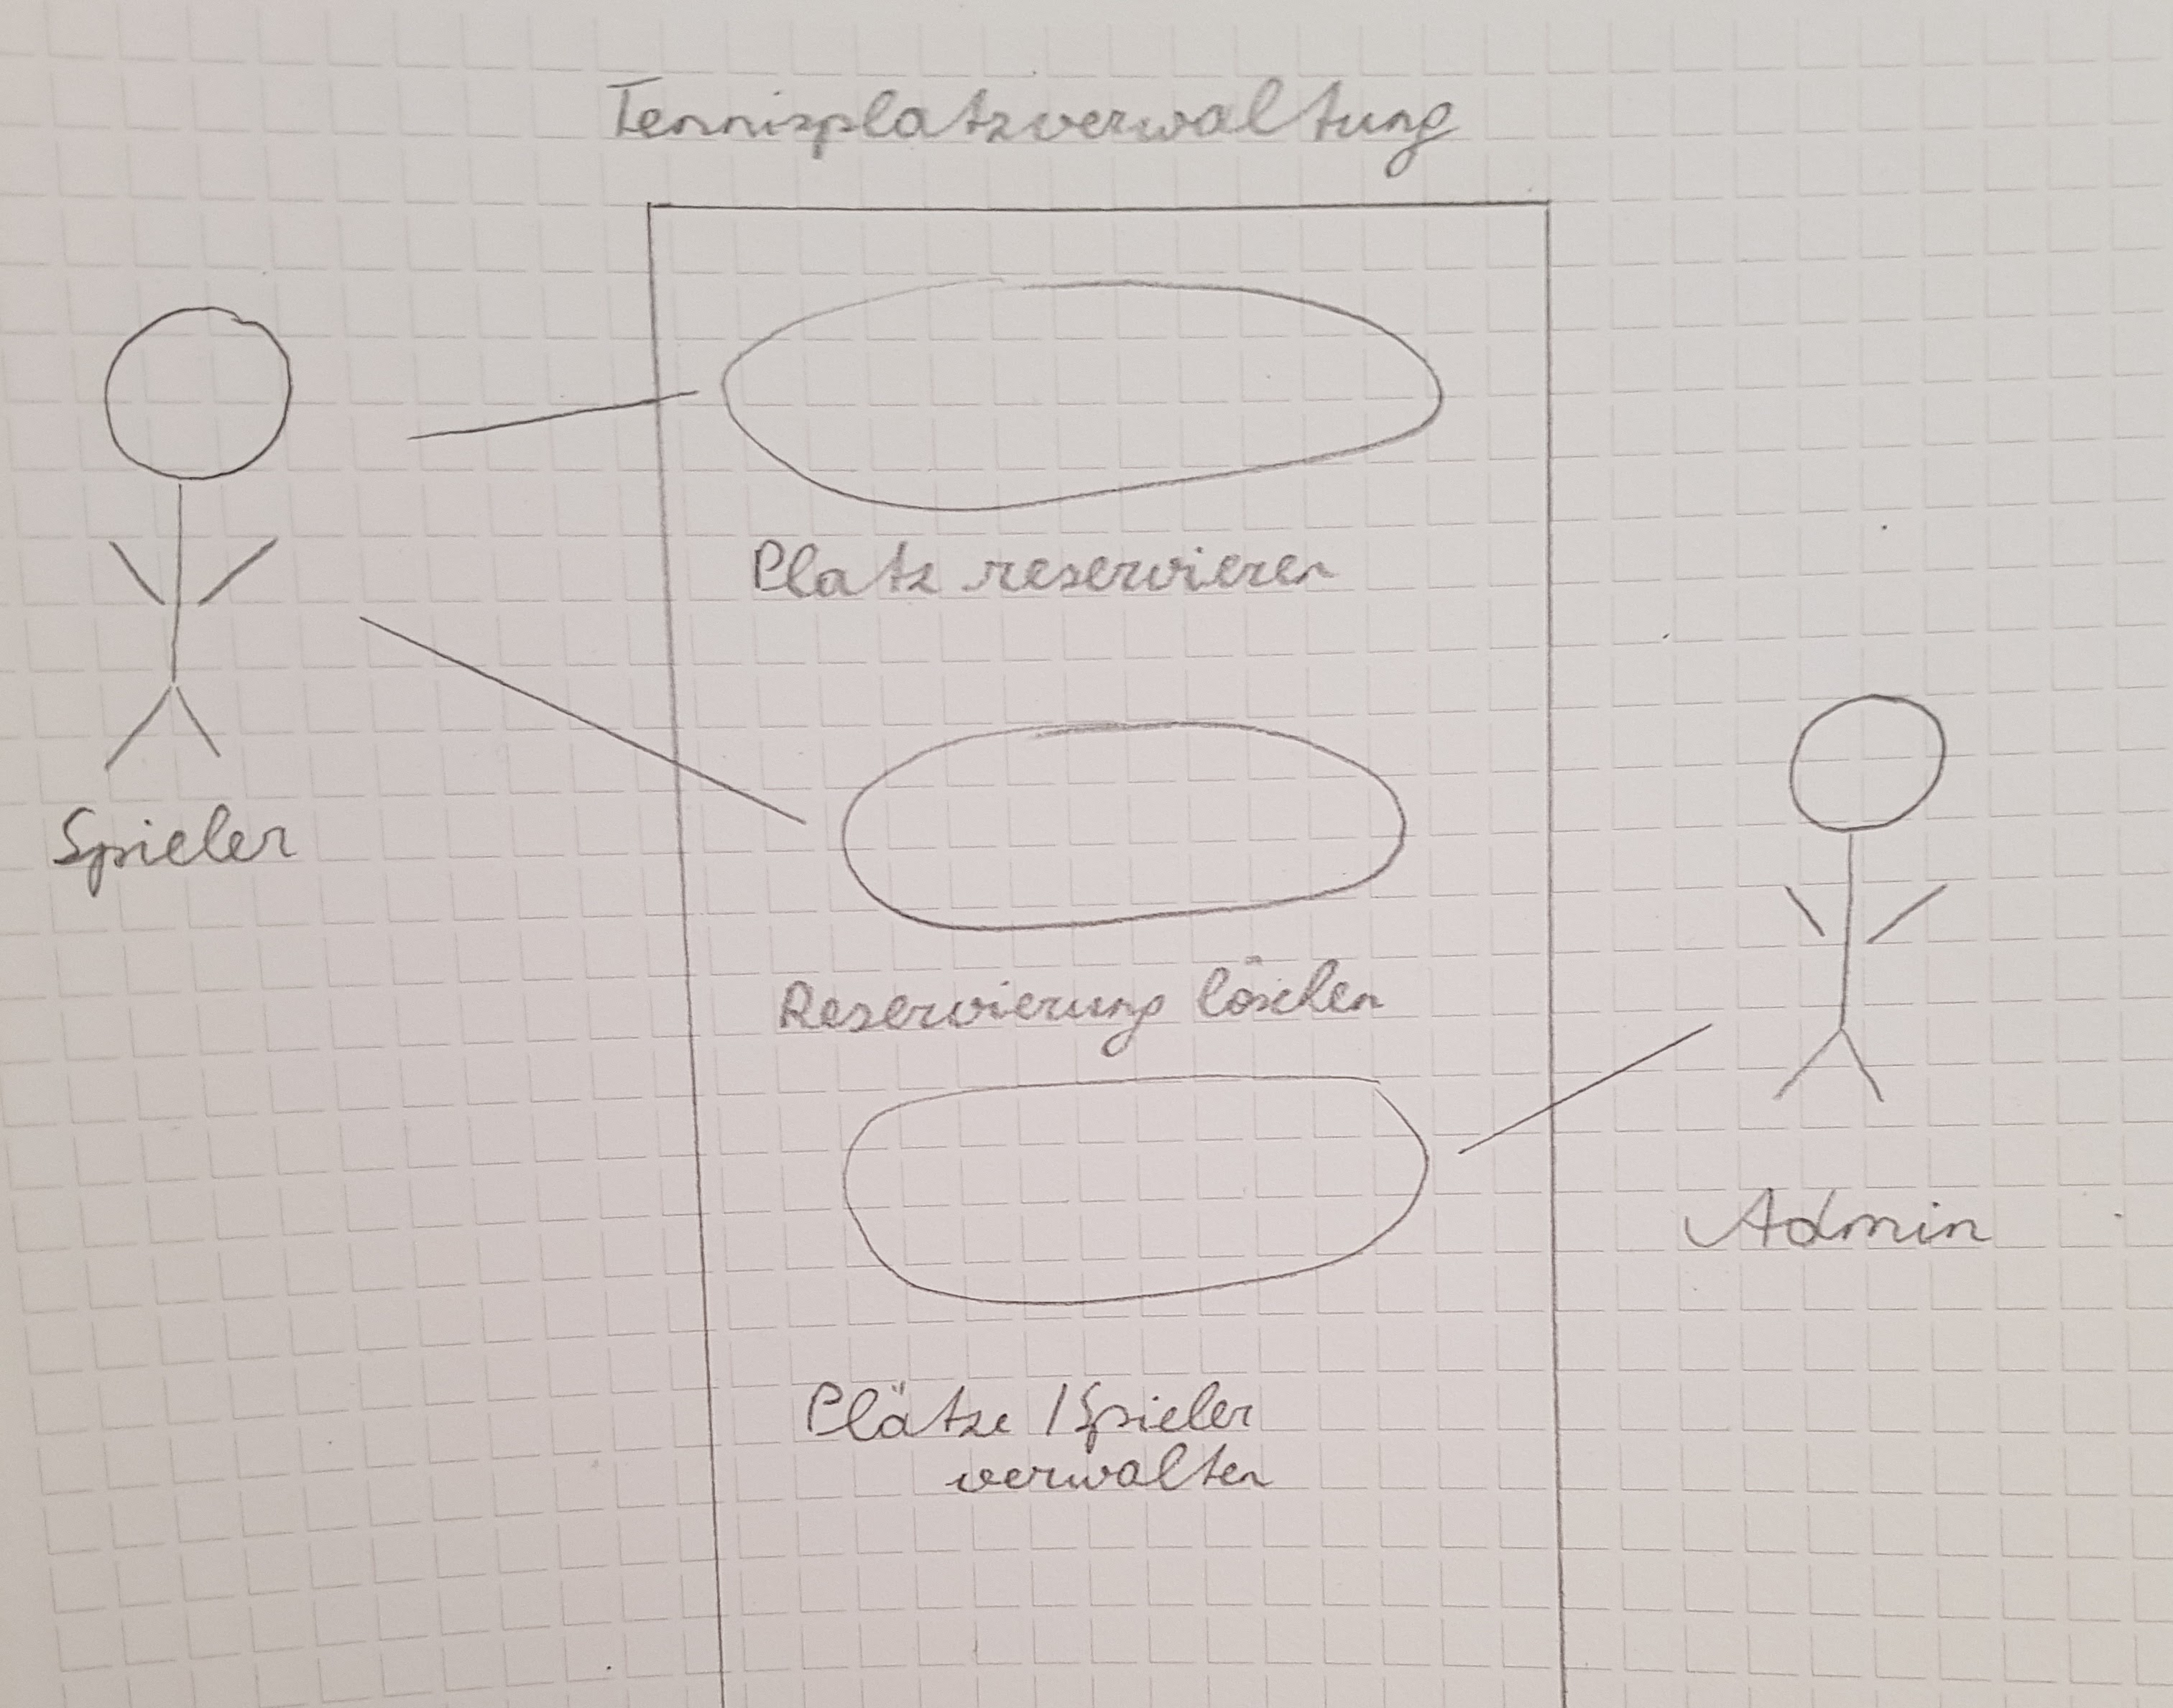 Tennisplatzverwaltung
Platz reservieren
Spieler
Reservierung löschen
Admin
Plätze / Spieler
verwalten